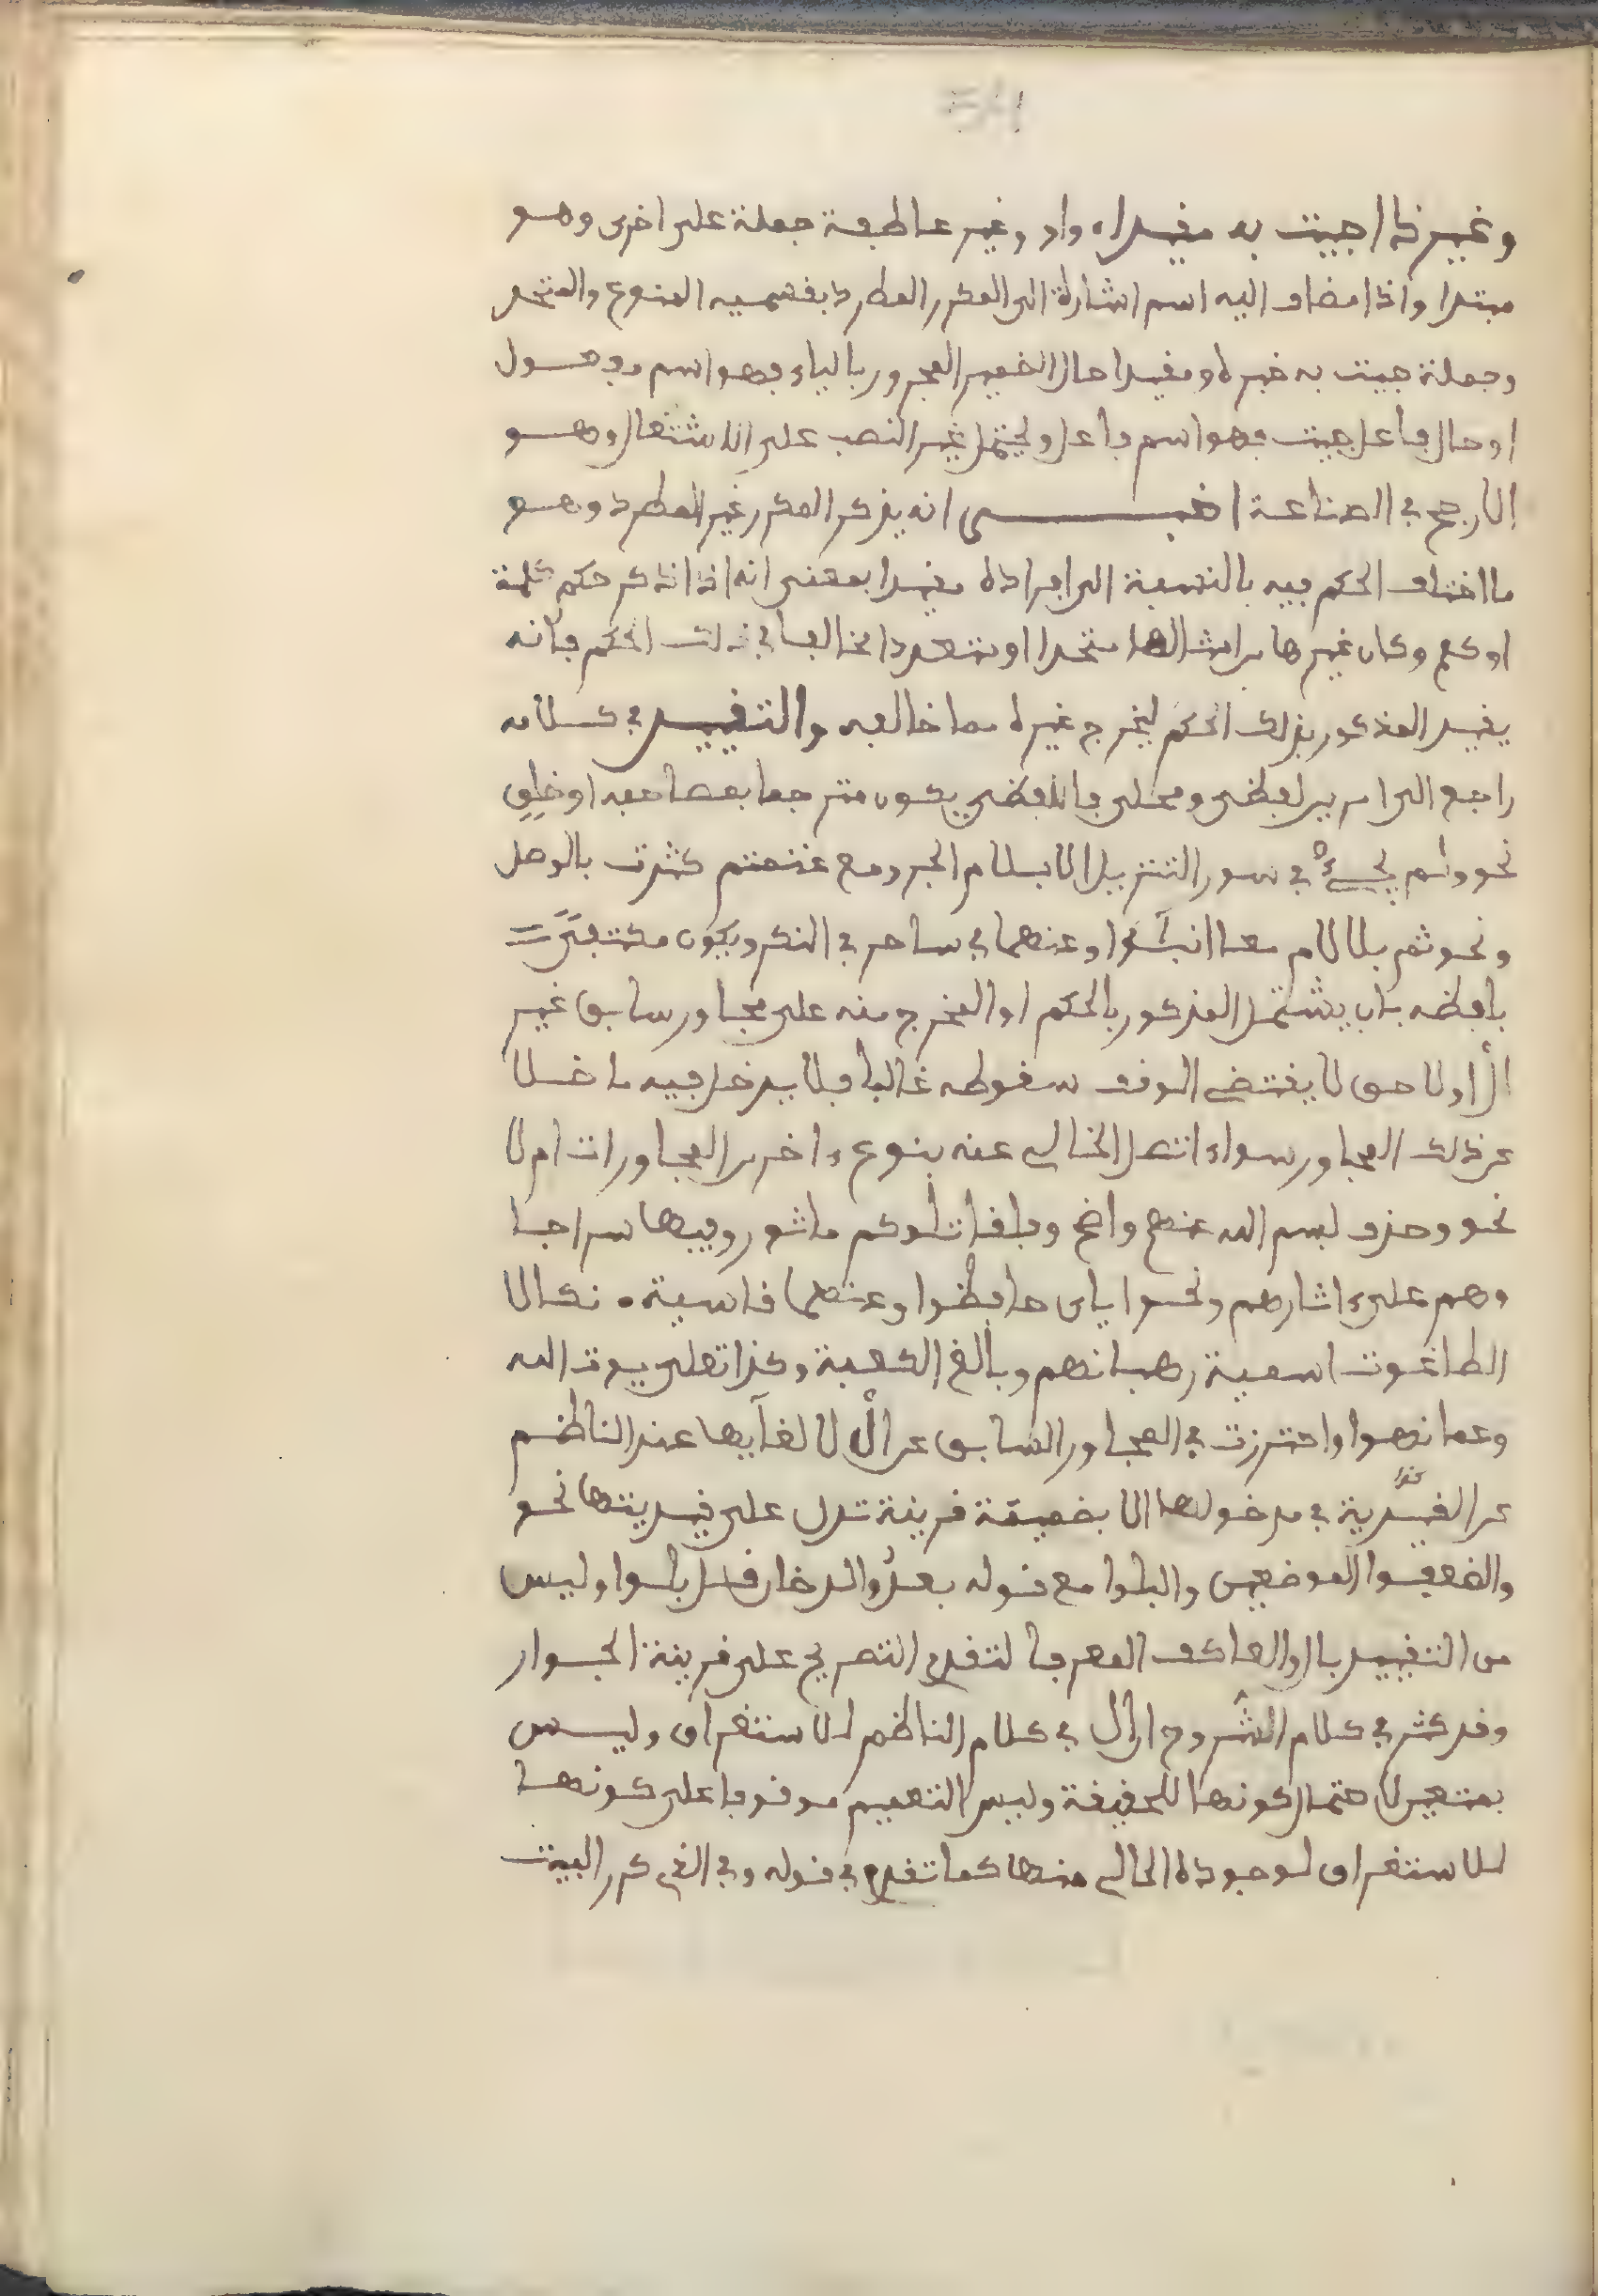 وغير ذا جيت به مقيدا، واو وغير عاطفة جملة على اخرى وهو
مبتدا وذا مضاف اليه اسم اشارة الى المكرر المطرد بقسميه المنوع والمتحد
وجملة جيت به خبره ومقيدا حال الضمير المجرور بالباء فهو اسم مفعول
او حال فاعل جيت فهو اسم فاعل ويحتمل غير النصب على الاشتغال وهو
الارجح في الصناعة اخبر انه يذكر المكرر غير المطرد وهو
ما اختلف الحكم فيه بالنسبة الى افراده مقيدا بمعنى انه اذا ذكر حكم كلمة
او كلم وكان غيرها من امثالها متحدا او متعددا مخالفا في ذلك الحكم فانه
يقيد المذكور بذلك الحكم ليخرج غيره مما خالفه والتقييد في كلامه
راجع الى امرين لفظي ومحلي فاللفظي يكون مترجما بمصاحبه او خلي
نحو ولم يجئ في سور التنزيل الا بسلام الجر ومع غنمتم كثرت بالوصل
ونحو ثم بلا لام معا انبـٰوا وعنهما في ساحر في النكر ويكون مكتفى
بلفظه بان يشتمل المذكور بالحكم او المخرج منه على مجاور سابق غير
ال او لاحق لا يقتضي الوقف سقوطه غالبا فلا يدخل فيه ما خلا
عن ذلك المجاور سواء اتصل الخالي عنه بنوع ءاخر من المجاورات ام لا
نحو وحذف بسم الله عنهم واضح وبلقاتلوكم ماثور وفيها سراجا
وهم على ءاثارهم ونحو اياى حافظوا وعنهما قاسية • نكالا
الطاغوت اسمية رهبانهم وبالغ الكعبة وكذا تعلى بيوت الله
وعما نهوا واحترزت في المجاور السابق عن ال لالغآيها عند الناظم
عن القيدية في مدخولها الا بضميمة قرينة تدل على قيديتها نحو
والضعفوا الموضعين والبلوا مع قوله بعد والدخان قل بلوا وليس
من التقييد بال والعاكف المعرفا لتقدم التصريح على قرينة الجوار
وقد كثر في كلام الشروح ان ال في كلام الناظم للاستغراق وليس
بمتعين لاحتمال كونها للحقيقة وليس التعميم موقوفا على كونها
للاستغراق لوجوده الحالي منها كما تقدم في قوله وفي الذي كرر البيت